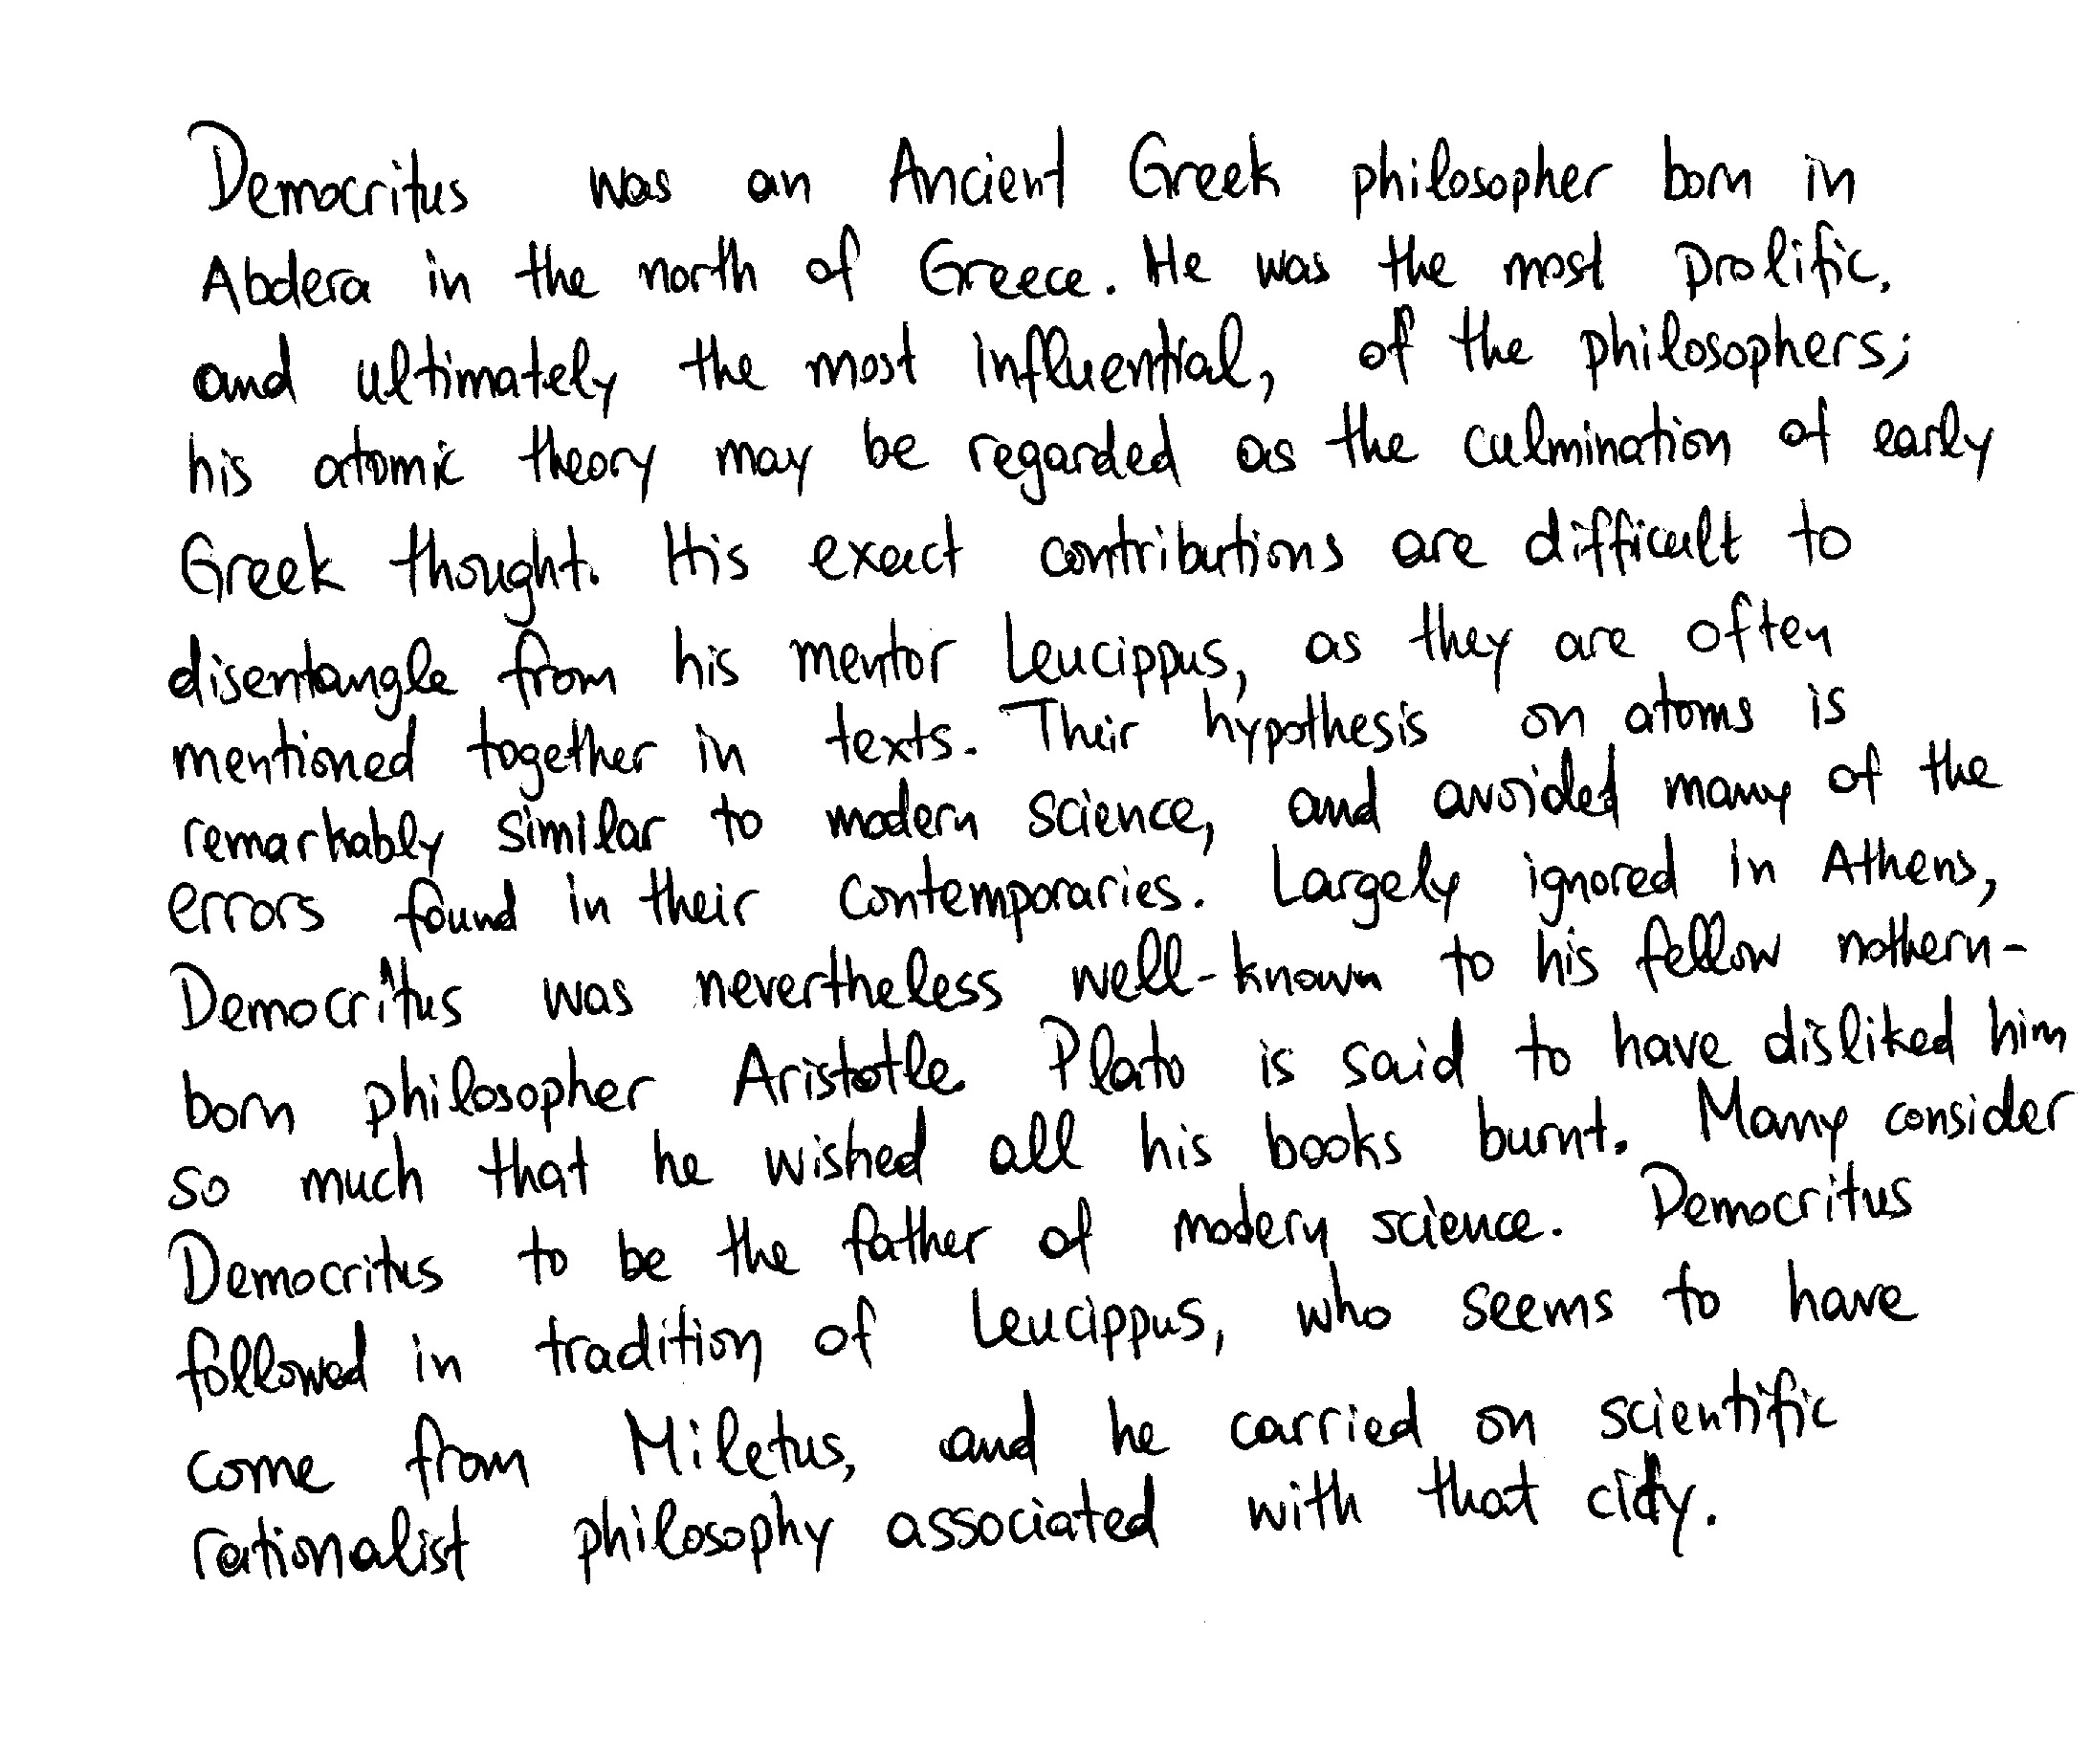 Democritus was an Ancient Greek philosopher born in
Abdera in the north of Greece. He was the most prolific,
and ultimately the most influential, of the philosophers;
his atomic theory may be regarded as the culmination of early
Greek thought. His exact contributions are difficult to
disentangle from his mentor Leucippus, as they are often
mentioned together in texts. Their hypothesis on atoms is
remarkably similar to modern science, and avoided many of the
errors found in their contemporaries. Largely ignored in Athens,
Democritus was nevertheless well-known to his fellow nothern-
born philosopher Aristotle. Plato is said to have disliked him
so much that he wished all his books burnt. Many consider
Democritus to be the father of modern science. Democritus
followed in tradition of Leucippus, who seems to have
come from Miletus, and he carried on scientific
rationalist philosophy associated with that city.